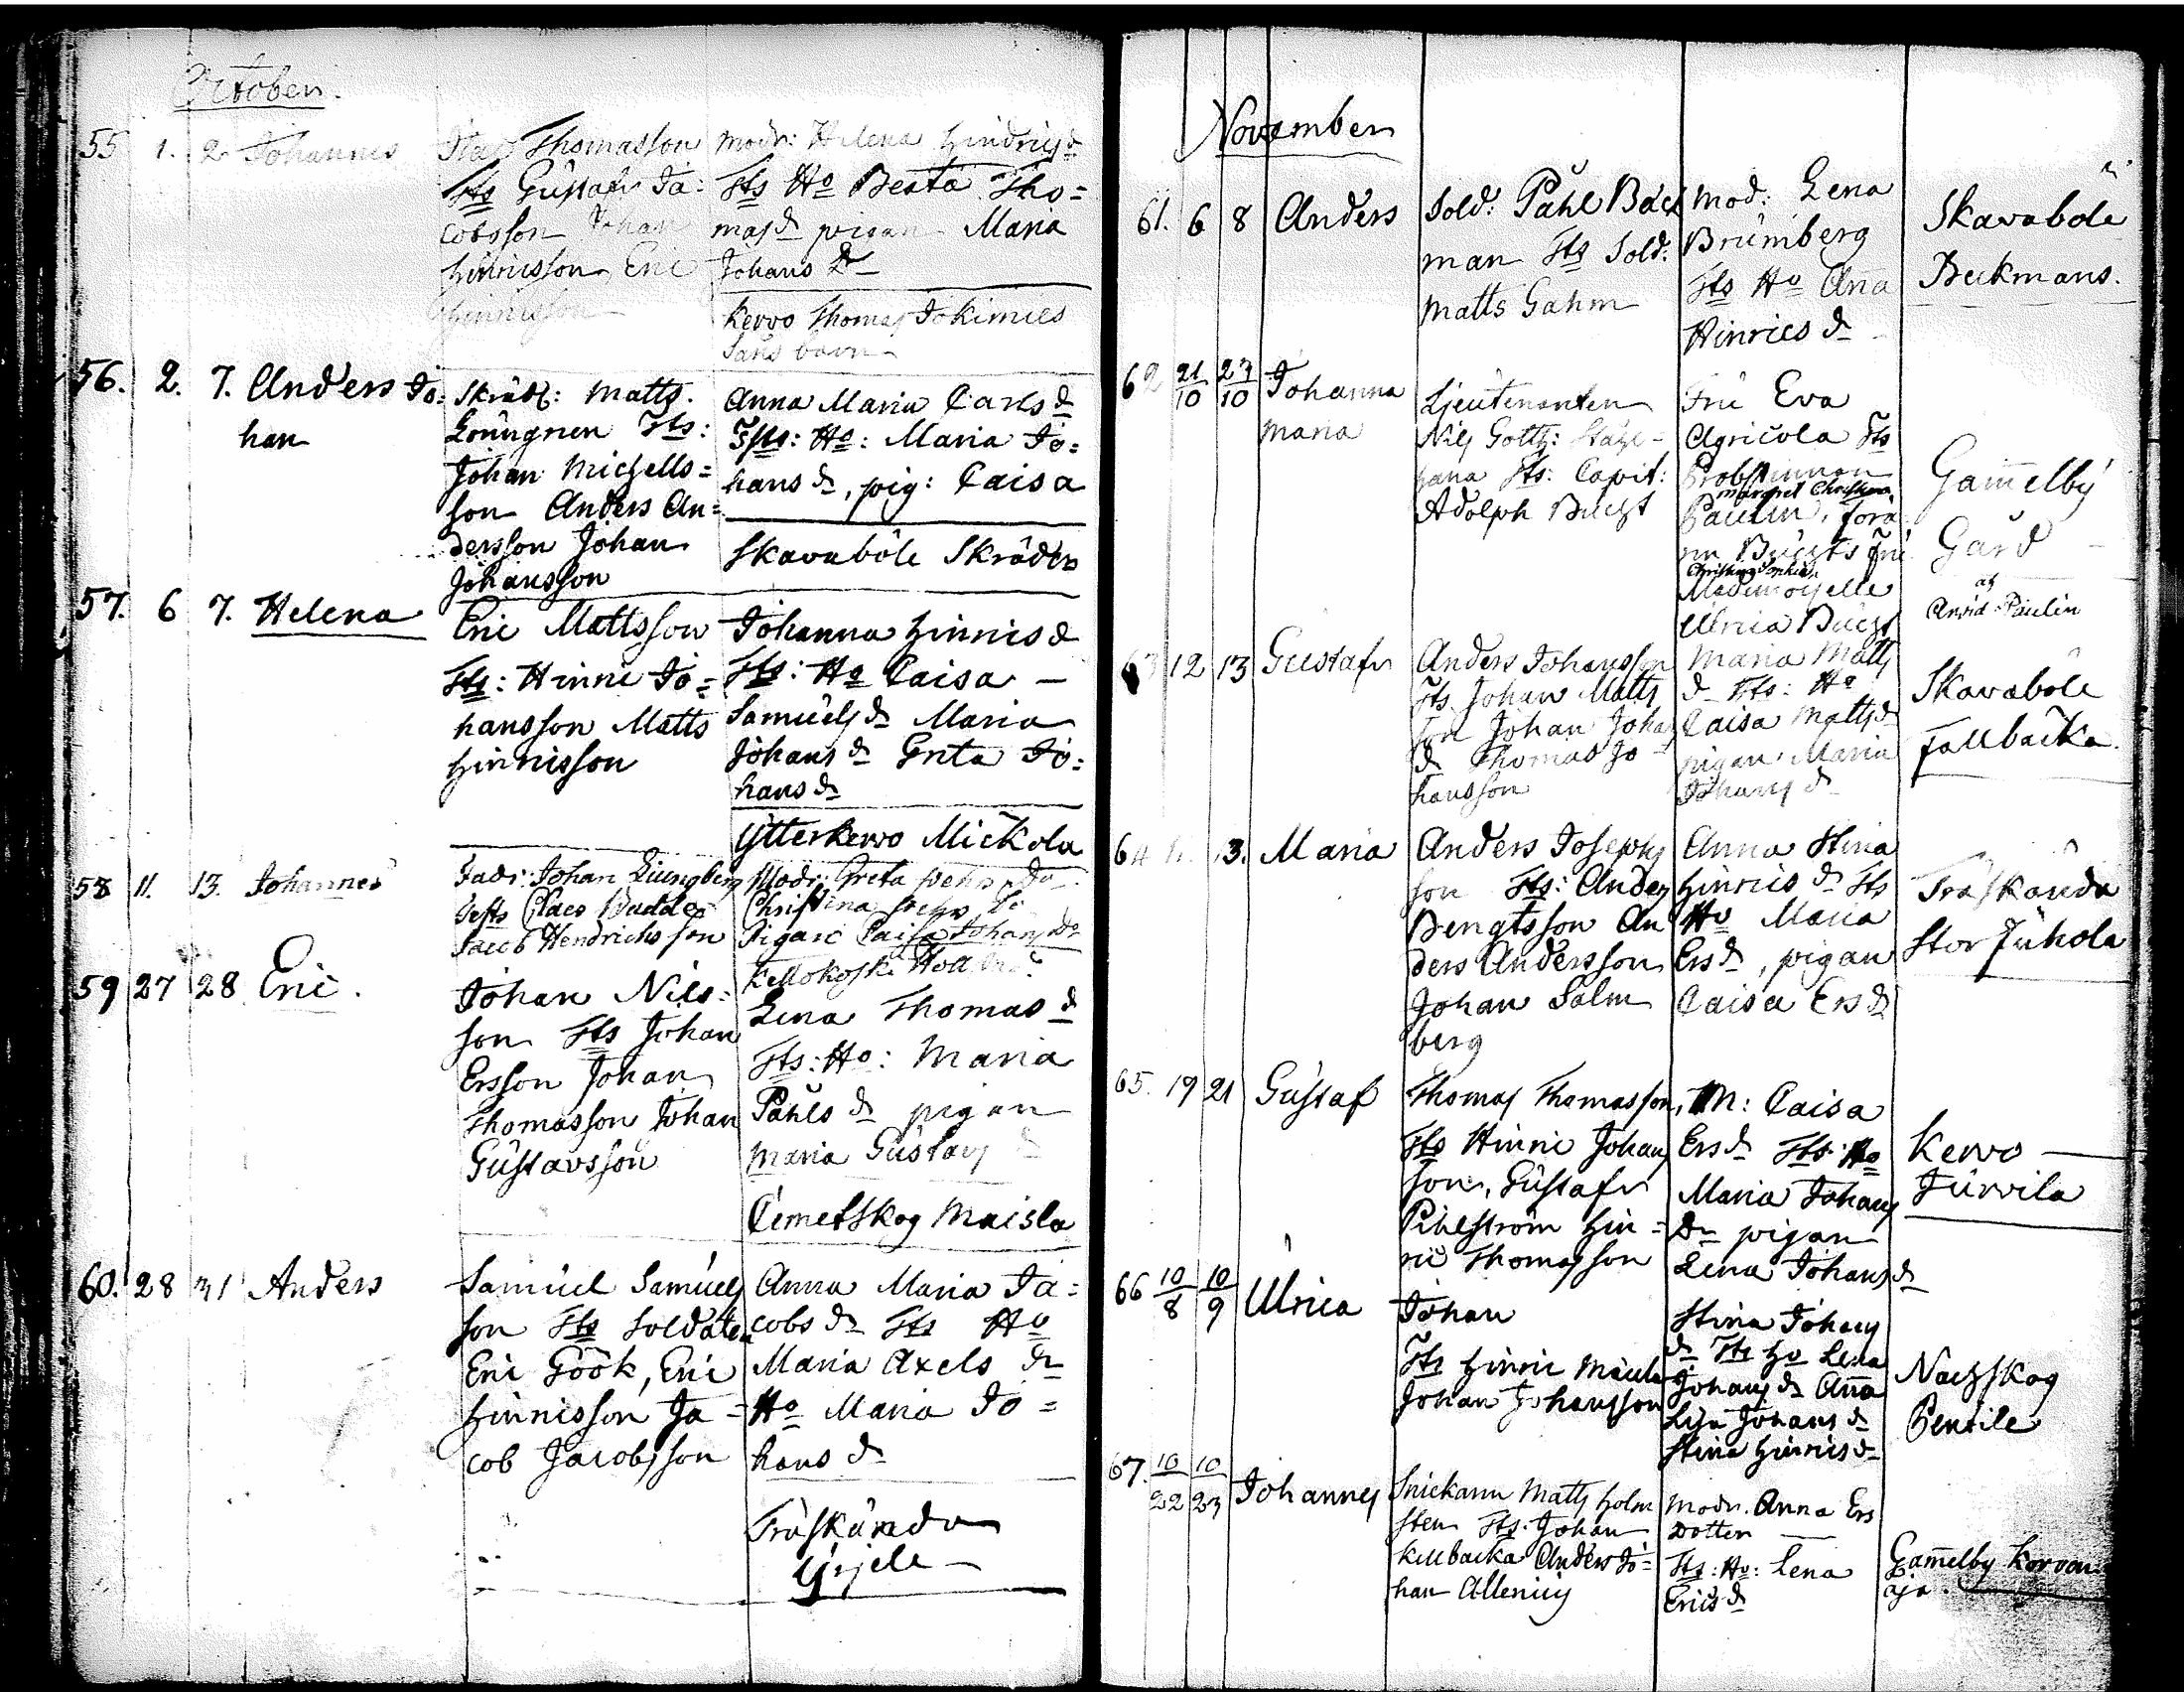 October.
55 1. 2 Johannes
Thomasson
Fts Gustafv Ja:
cobsson Johan
Hinricsson Eric
Hinricsson
Modr: Helena Hindrics dr
Fts Ho Beata Tho=
mas dr pigan Maria
Johans Dr
Kervo Thomas Jokimies
56. 2. 7. Anders Jo=
han
Skräd: Matts
Fts:
Johan Michells=
son Anders An=
dersson Johan
Johansson
Anna Maria Carls dr
Fts: Ho: Maria Jo=
hans dr, pig: Caisa
Skavaböle Skräders
57. 6 7. Helena
Eric Mattsson
Fts: Hinric Jo=
hansson Matts
Hinricsson
Johanna Hinrics dr
Fts: Ho Caisa
Samuels dr Maria
Johans dr Greta Jo=
hans dr
Ytterkervo Mickola
58 11. 13. Johannes
Fadr: Johan Liungberg
Claes Budde
Jacob Hendrichsson
Modr: Greta
Christina
Pigan Caisa Johans Dr
Kellokoski
59 27 28 Eric.
Johan Nils=
son Fts Johan
Ersson Johan
Thomasson Johan
Gustavsson
Lena Thomas dr
Fts: Ho: Maria
Påhls dr pigan
Maria Gustavs
Klemetskog Maisla
60. 28 31 Anders
Samuel Samuels
son Fts Soldaten
Eric Göök, Eric
Hinricsson Ja=
cob Jacobsson
Anna Maria Ja=
cobs dr Fts Ho
Maria Axels dr
Ho Maria Jo=
hans dr
Träskända
November
61. 6 8 Anders
Sold: Påhl Back
man Fts Sold:
Matts Gahm
Mod: Lena
Brumberg
Fts Ho Anna
Hinrics dr
Skavaböle
Backmans.
62 21/10 23/10 Johanna
Maria
Lieutenanten
Nils Gotth: Stålh=
hana Fts: Capit:
Adolph Bucht
Fru Eva
Agricola Fts
Probstinnan
Margret Christina
Paulin,
Buchts fru
Christina
Mademoiselle
Ulrica Bucht
Gamelby
Gård
af
Arvid Paulin
63 12 13 Gustafv
Anders Johansson
Fts Johan Matts
son Johan Johans
dr Thomas Jo
hansson
Maria Matts
dr Fts: Ho
Caisa Matts dr
pigan Maria
Johans dr
Skavaböle
Fallbacka.
64 11. 13. Maria
Anders Josephs
son Fts: Anders
Bengtsson An
ders Andersson
Johan Salm
berg
Anna Stina
Hinrics dr Fts
Ho Maria
Ers dr, pigan
Caisa Ers dr
Träskända
Stor Juhola
65. 19 21 Gustaf
Thomas Thomasson,
Fts Hinric Johans
son, Gustafv
Pihlström Hin=
ric Thomasson
M: Caisa
Ers dr Fts: Ho
Maria Johans
dr pigan
Lena Johans dr
Kervo
Jurvila
66 10/8 10/9 Ulrica
Johan
Fts Hinric
Johan Johansson
Stina Johans
dr Fts Ho Lena
Johans dr Anna
Lisa Johans dr
Stina Hinrics dr
Nachskog
Pentile
67. 10/22 10/23 Johannes
Snickaren Matts Holm
sten Fts: Johan
Killbacka Anders Jo=
han Allenius
Modr. Anna Ers
Dotter
Fts: Ho: Lena
Erics dr
Gamelby Korvan
oja